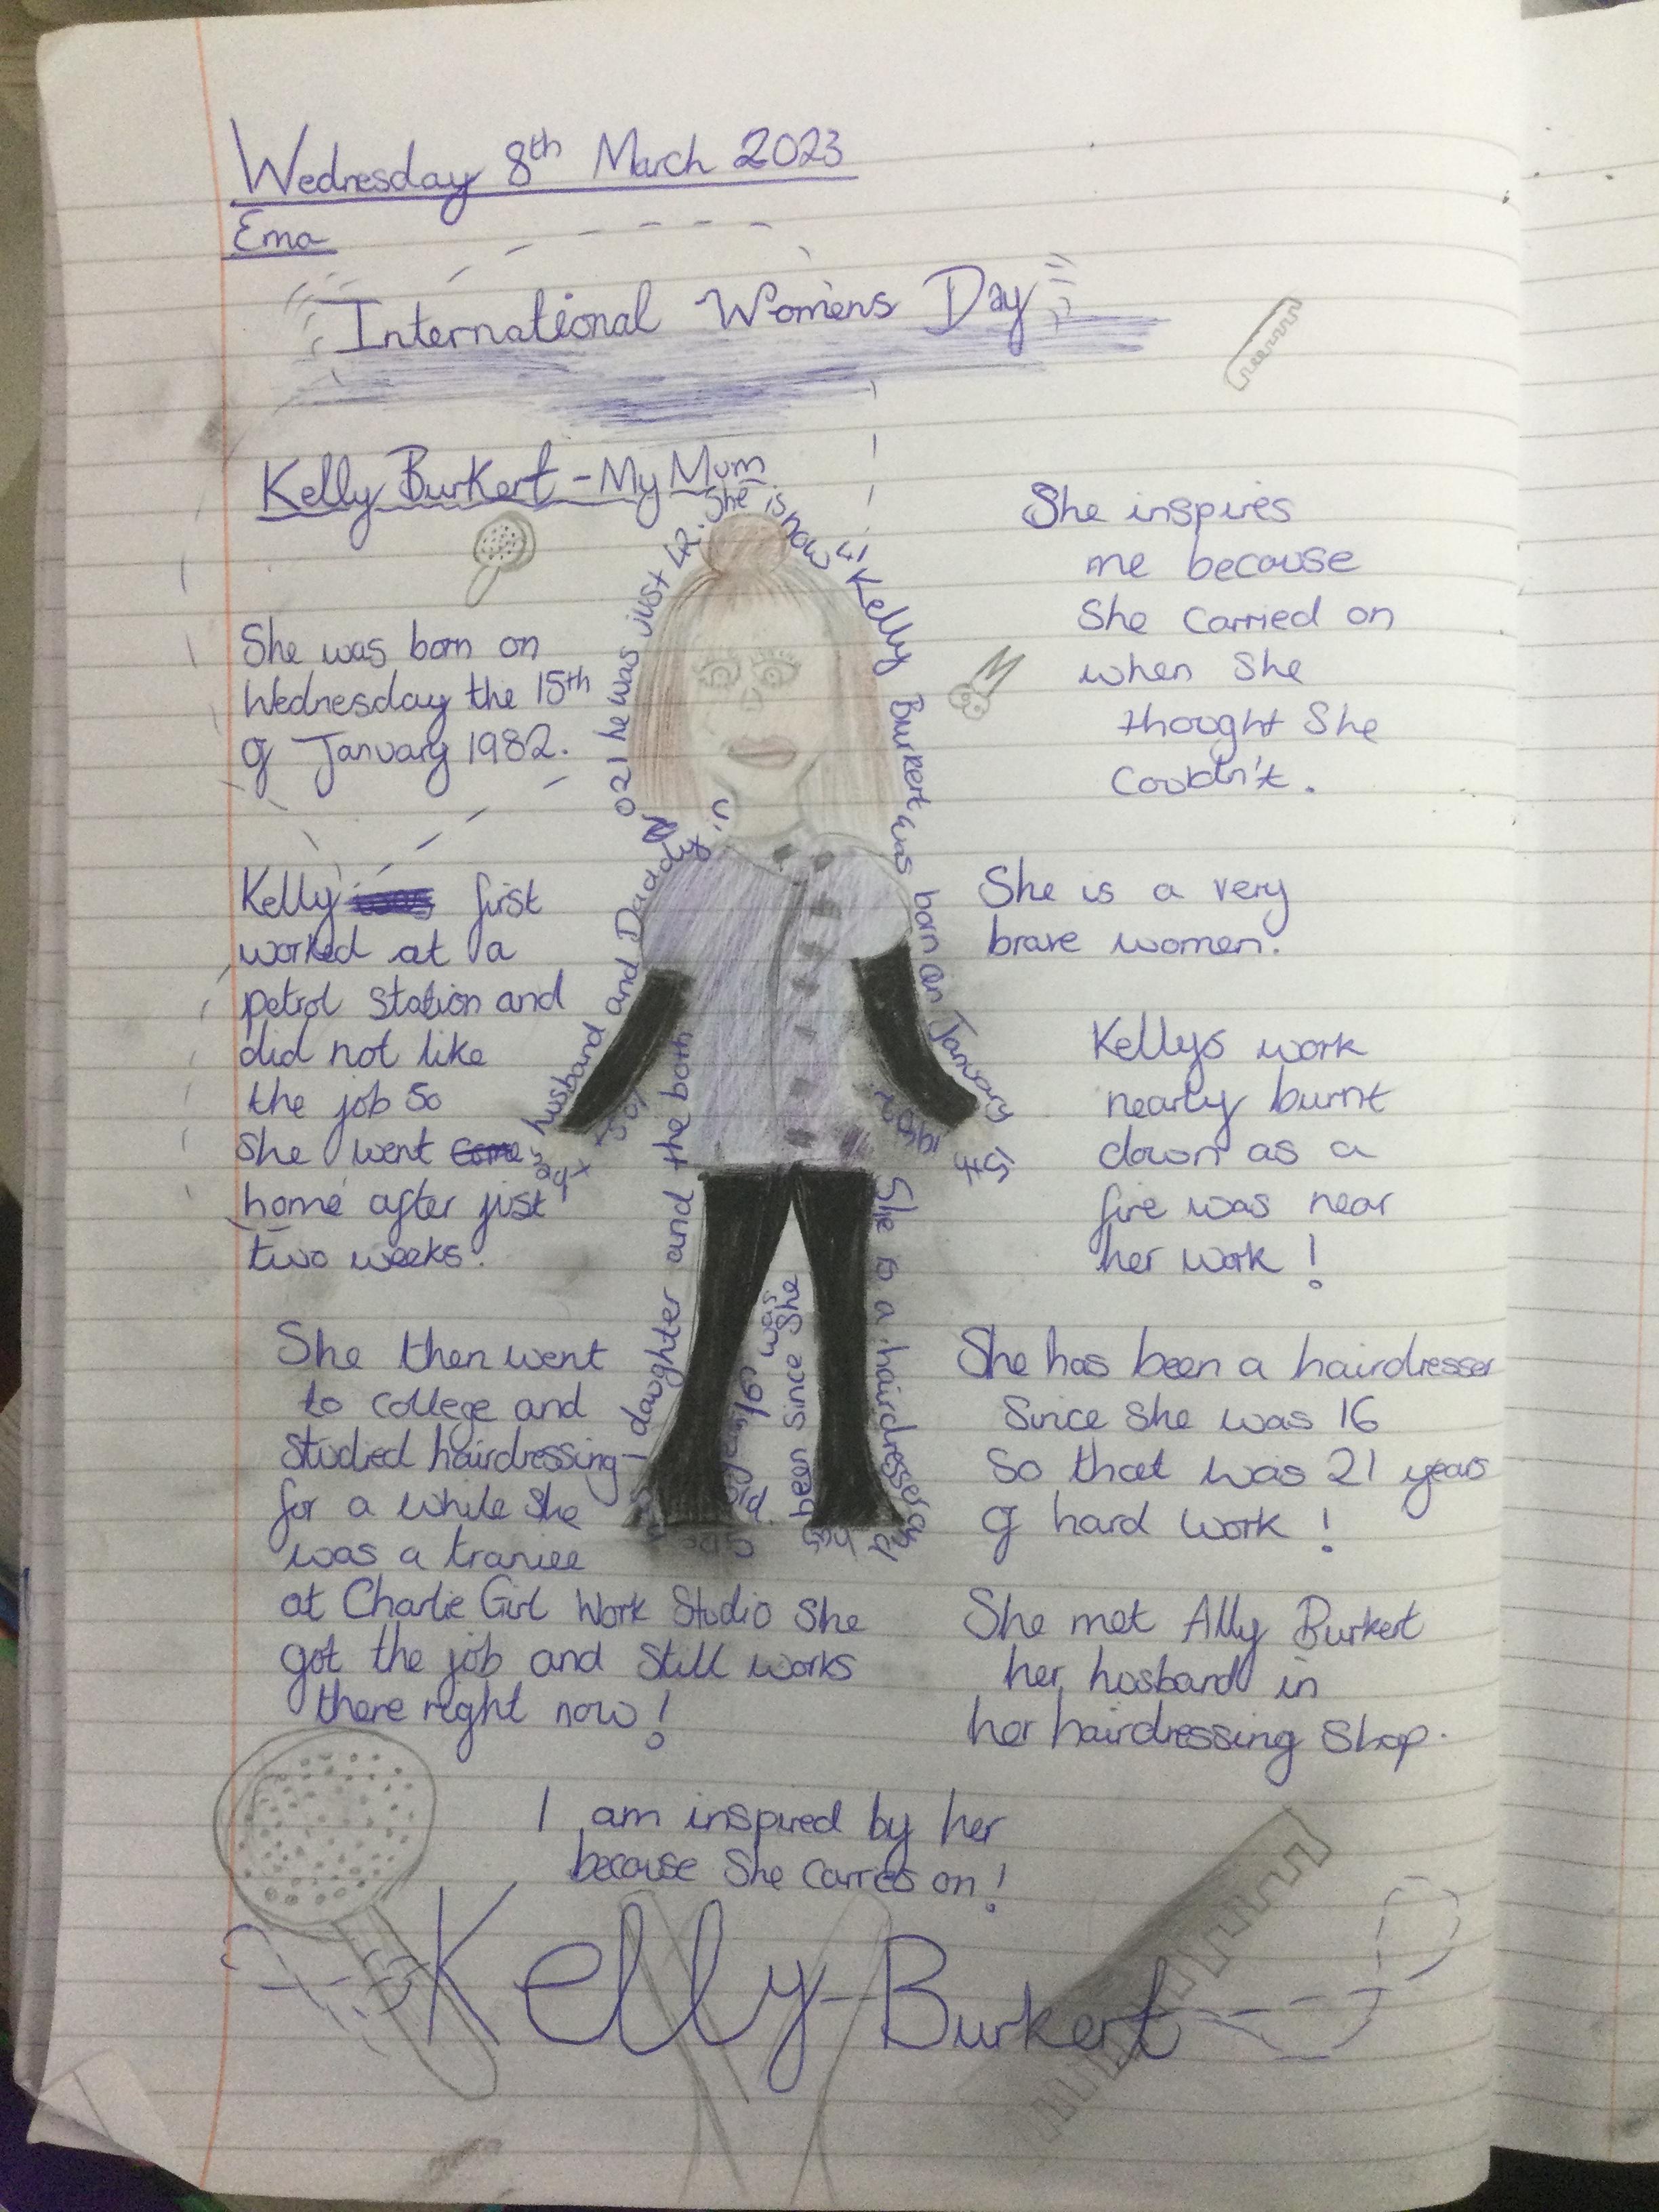 Wednesday 8th March 2023
Ema
International Womens Day
Kelly Burkert - My Mum
She was born on
Wednesday the 15th
of January 1982.
Kelly first
worked at a
petrol station and
did not like
the job so
she went
home after just
two weeks.
She then went
to college and
studied hairdressing
for a while she
was a traniee
at Charlie Girl Work Studio She
got the job and still works
there right now!
She inspires
me because
She carried on
when she
thought She
Couldn't.
She is a very
brave women.
Kellys work
nearly burnt
down as a
fire was near
her work!
She has been a hairdresser
Since she was 16
So that was 21 years
of hard work!
She met Ally Burkert
her husband in
her hairdressing Shop.
She is now 41 Kelly Burkert was born on January 15th
1982
She is a hairdresser and has
been since She
was 16 years
old. She
1 daughter and the both
husband and Daddy in
021 he was just 42.
I am inspired by her
because She carries on!
Kelly-Burkert